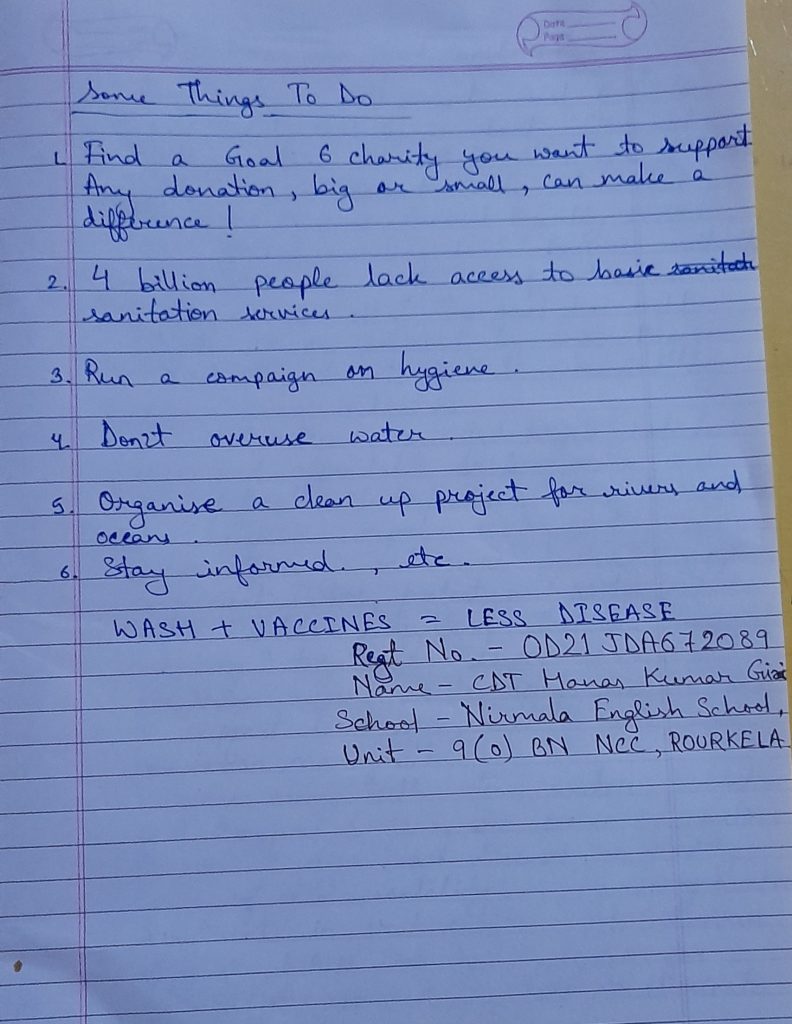 Date
Page
Some Things To Do
1. Find a Goal 6 charity you want to support
Any donation, big or small, can make a
difference!
2. 4 billion people lack access to basic sanitatn
sanitation services.
3. Run a campaign on hygiene.
4. Don't overuse water.
5. Organise a clean up project for rivers and
oceans.
6. Stay informed., etc.
WASH + VACCINES = LESS DISEASE
Regt No. - OD21 JDA672089
Name - CDT Manas Kumar Giri
School - Nirmala English School,
Unit - 9(O) BN NCC, ROURKELA